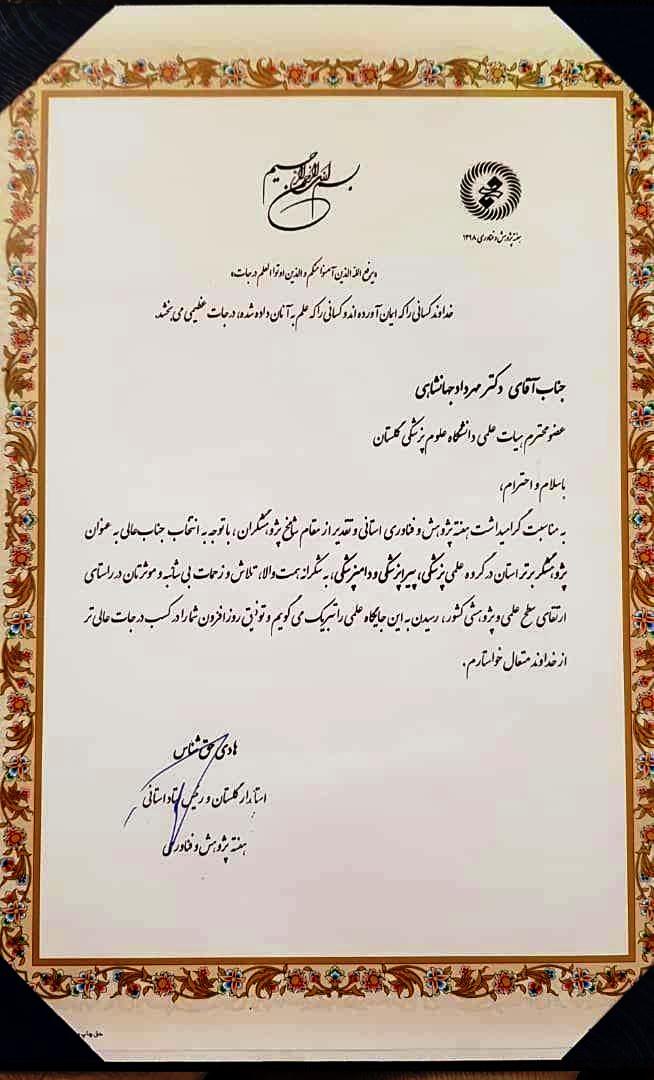 بسم الله الرحمن الرحیم
هفته پژوهش و فناوری ۱۳۹۸
«یرفع الله الذین آمنوا منکم و الذین اوتوا العلم درجات»
خداوند کسانی را که ایمان آورده اند و کسانی را که علم به آنان داده شده، درجات عظیمی می بخشد.
جناب آقای دکتر مهرداد جهانشاهی
عضو محترم هیات علمی دانشگاه علوم پزشکی گلستان
باسلام و احترام،
به مناسبت گرامیداشت هفته پژوهش و فناوری استانی و تقدیر از مقام شامخ پژوهشگران، با توجه به انتخاب جناب عالی به عنوان
پژوهشگر برتر استان در گروه علمی پزشکی، پیراپزشکی و دامپزشکی، به شکرانه همت والا، تلاش و زحمات بی شائبه و موثرتان در راستای
ارتقای سطح علمی و پژوهشی کشور، رسیدن به این جایگاه علمی را تبریک می گویم و توفیق روز افزون شما را در کسب درجات عالی تر
از خداوند متعال خواستارم.
هادی حق شناس
استاندار گلستان و رئیس ستاد استانی
هفته پژوهش و فناوری
حق چاپ